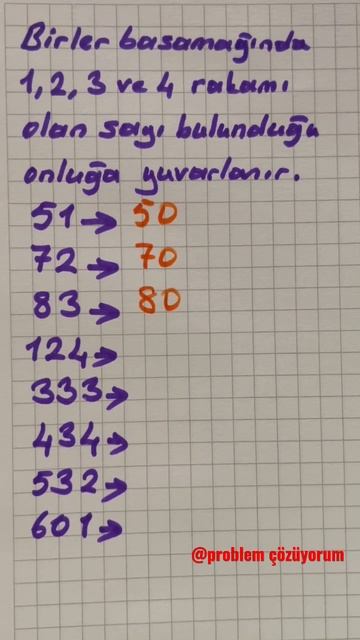 Birler basamağında
1, 2, 3 ve 4 rakamı
olan sayı bulunduğu
onluğa yuvarlanır.
51→ 50
72→ 70
83→ 80
124→
333→
434→
532→
601→
@problem çözüyorum